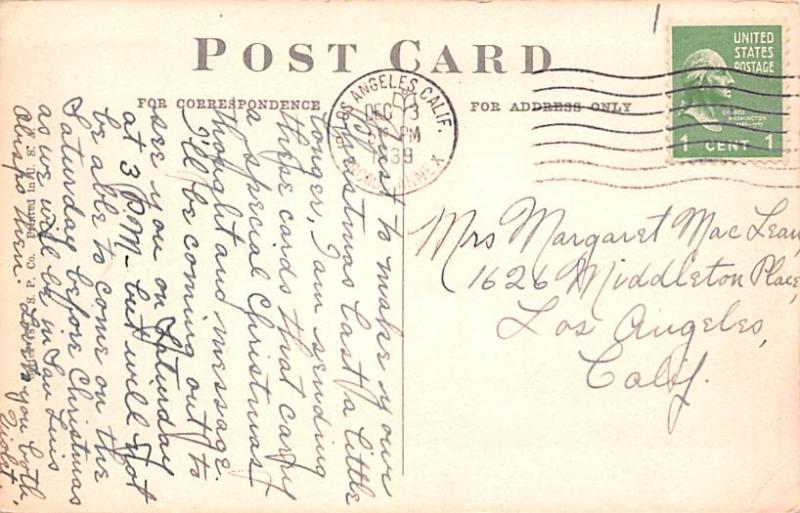 POST CARD
FOR CORRESPONDENCE
FOR ADDRESS ONLY
UNITED
STATES
POSTAGE
GEORGE
WASHINGTON
1 CENT 1
LOS ANGELES, CALIF.
DEC 13
PM
39
ANNEX
Mrs Margaret MacLean,
1626 Middleton Place,
Los Angeles,
Calif.
Just to make your
Christmas last a little
longer, I am sending
these cards that carry
a special Christmas
thought and message.
I'll be coming out to
see you on Saturday
at 3 PM - but will not
be able to come on the
Saturday before Christmas
as we will be in San Luis
Obispo then. Love to you both,
Violet.
Printed in U. S. A.